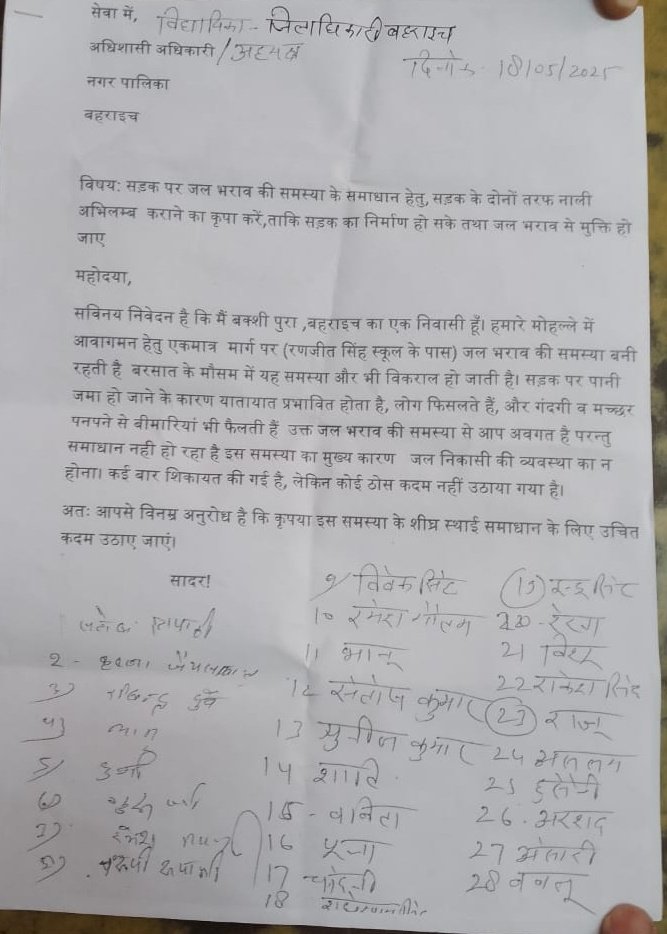 सेवा में, विधायिका - जिलाधिकारी बहराइच
अधिशासी अधिकारी / अध्यक्ष
दिनांक - 18/05/2025
नगर पालिका
बहराइच
विषय: सड़क पर जल भराव की समस्या के समाधान हेतु, सड़क के दोनों तरफ नाली
अभिलम्ब कराने का कृपा करें,ताकि सड़क का निर्माण हो सके तथा जल भराव से मुक्ति हो
जाए
महोदया,
सविनय निवेदन है कि मैं बक्शी पुरा ,बहराइच का एक निवासी हूँ। हमारे मोहल्ले में
आवागमन हेतु एकमात्र मार्ग पर (रणजीत सिंह स्कूल के पास) जल भराव की समस्या बनी
रहती है बरसात के मौसम में यह समस्या और भी विकराल हो जाती है। सड़क पर पानी
जमा हो जाने के कारण यातायात प्रभावित होता है, लोग फिसलते हैं, और गंदगी व मच्छर
पनपने से बीमारियां भी फैलती हैं उक्त जल भराव की समस्या से आप अवगत है परन्तु
समाधान नही हो रहा है इस समस्या का मुख्य कारण जल निकासी की व्यवस्था का न
होना। कई बार शिकायत की गई है, लेकिन कोई ठोस कदम नहीं उठाया गया है।
अतः आपसे विनम्र अनुरोध है कि कृपया इस समस्या के शीघ्र स्थाई समाधान के लिए उचित
कदम उठाए जाएं।
सादर!
2 -
3)
4)
5)
6)
7)
8)
9) विवेक सिंह
10 रमेश गौतम
11 भानू
12 संतोष कुमार
13 सुनील कुमार
14 शान्ति
15 - वनिता
16 पूजा
17 चांदनी
18
19)
20 -
21
22 राकेश सिंह
23) राजू
24 असलम
25
26 - अरशद
27 अंसारी
28 बबलू